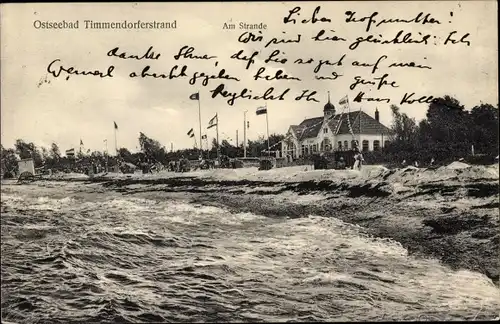 Ostseebad Timmendorferstrand
Am Strande
Lieber Hofmutter!
Wir sind hier glücklich. Ich
danke Ihnen, daß Sie so gut auf mein
Gemal acht gegeben haben und grüße
herzlichst Ihr
Hans Koll